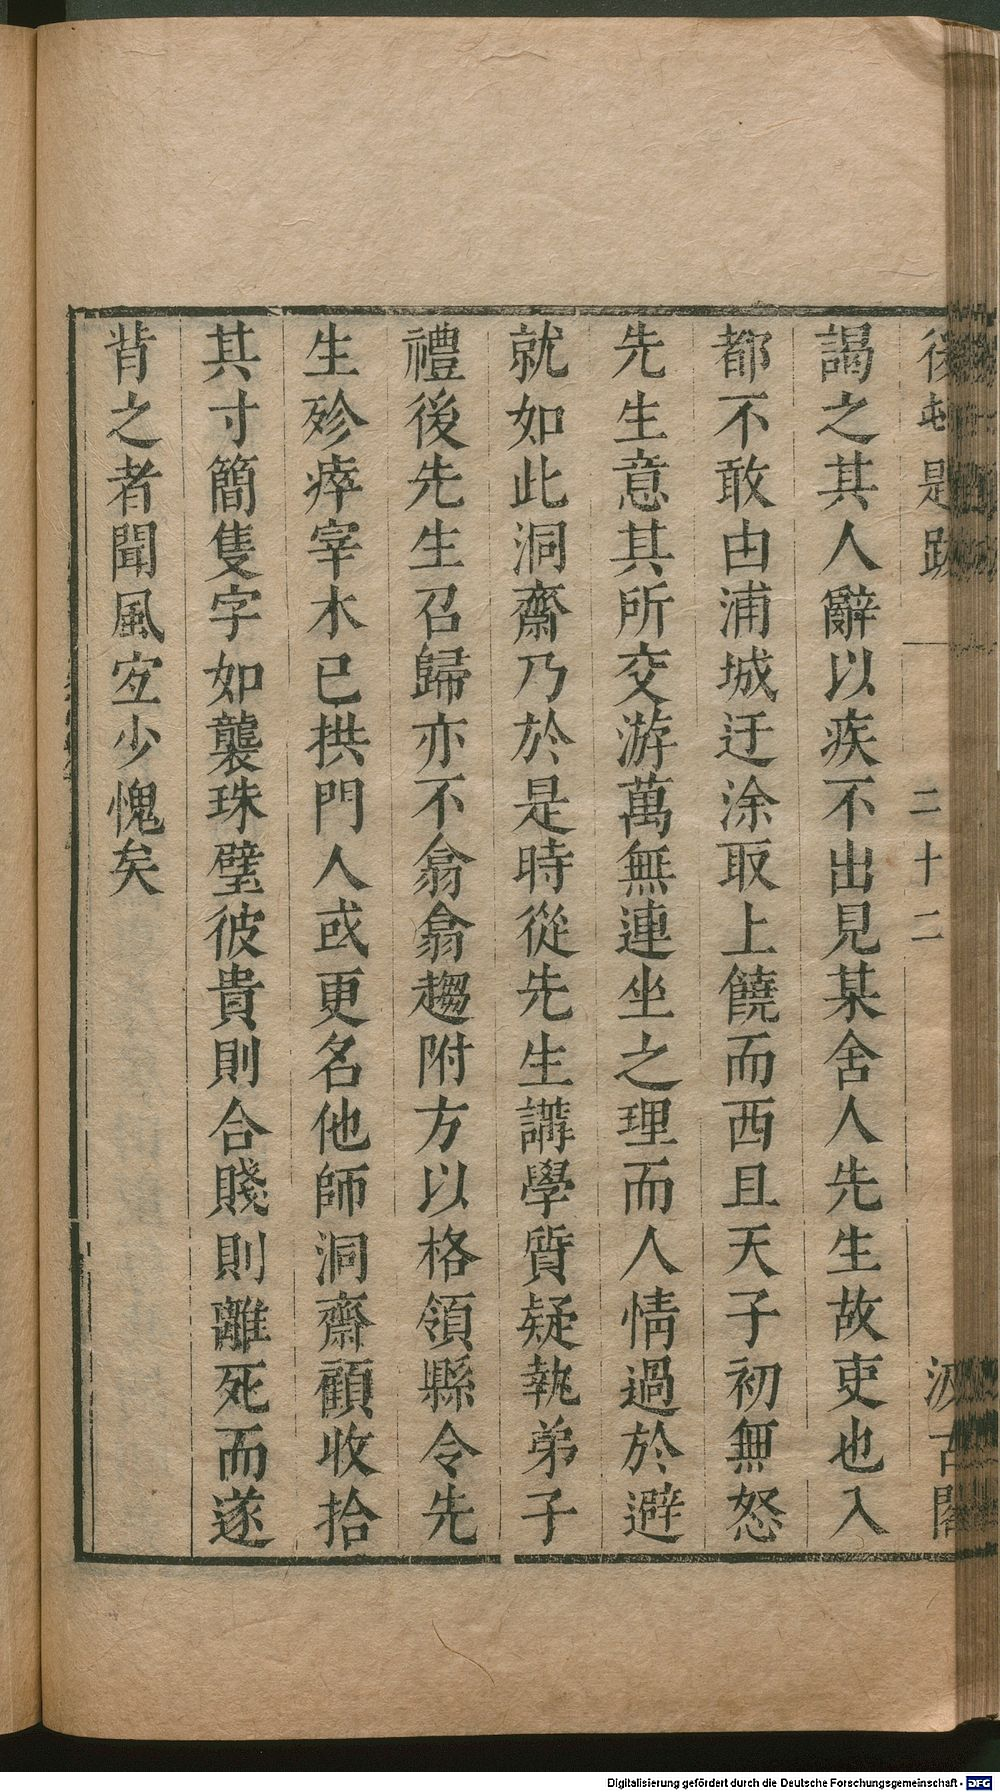 後村題跋 二十二 汲古閣
謁之其人辭以疾不出見某舍人先生故吏也入
都不敢由浦城迂涂取上饒而西且天子初無怒
先生意其所交游萬無連坐之理而人情過於避
就如此洞齋乃於是時從先生講學質疑執弟子
禮後先生召歸亦不翕翕趨附方以格領縣令先
生殄瘁宰木已拱門人或更名他師洞齋顧收拾
其寸簡隻字如襲珠璧彼貴則合賤則離死而遂
背之者聞風宐少愧矣
Digitalisierung gefördert durch die Deutsche Forschungsgemeinschaft - DFG